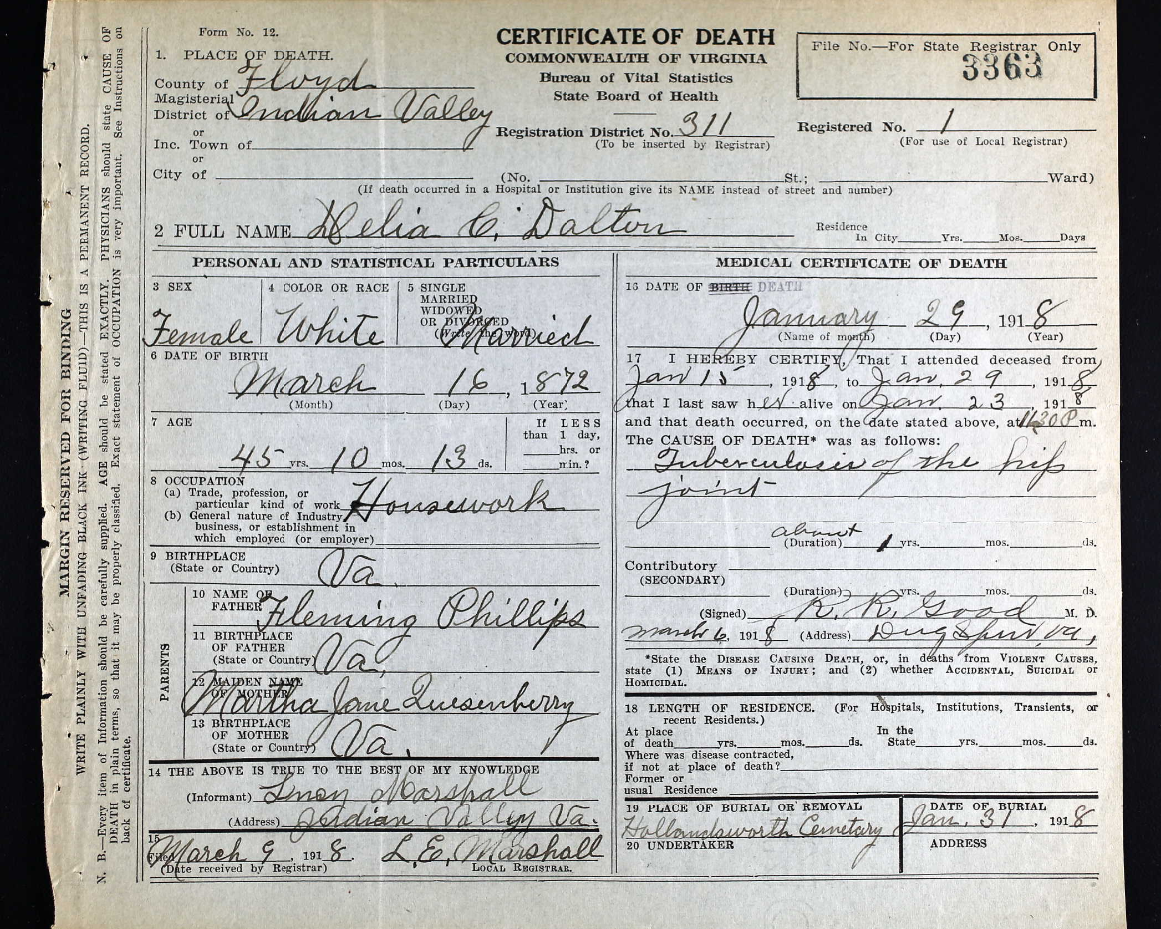 Form No. 12.
CERTIFICATE OF DEATH
COMMONWEALTH OF VIRGINIA
Bureau of Vital Statistics
State Board of Health
File No.—For State Registrar Only
3363
1. PLACE OF DEATH.
County of Floyd
Magisterial
District of Indian Valley
or
Inc. Town of
or
City of
Registration District No. 311
(To be inserted by Registrar)
Registered No. 1
(For use of Local Registrar)
(No. St.; Ward)
(If death occurred in a Hospital or Institution give its NAME instead of street and number)
2 FULL NAME Delia C. Dalton
Residence
In City Yrs. Mos. Days
PERSONAL AND STATISTICAL PARTICULARS
3 SEX
Female
4 COLOR OR RACE
White
5 SINGLE
MARRIED
WIDOWED
OR DIVORCED
(Write the word)
Married
6 DATE OF BIRTH
March 16, 1872
(Month) (Day) (Year)
7 AGE
45 yrs. 10 mos. 13 ds.
If LESS
than 1 day,
hrs. or
min.?
8 OCCUPATION
(a) Trade, profession, or
particular kind of work Housework
(b) General nature of Industry
business, or establishment in
which employed (or employer)
9 BIRTHPLACE
(State or Country) Va.
PARENTS
10 NAME OF
FATHER Fleming Phillips
11 BIRTHPLACE
OF FATHER
(State or Country) Va
12 MAIDEN NAME
OF MOTHER
Martha Jane Quesenberry
13 BIRTHPLACE
OF MOTHER
(State or Country) Va.
14 THE ABOVE IS TRUE TO THE BEST OF MY KNOWLEDGE
(Informant) Marshall
(Address) Indian Valley Va.
15
Filed March 9, 1918. L. E. Marshall
(Date received by Registrar) LOCAL REGISTRAR.
MEDICAL CERTIFICATE OF DEATH
16 DATE OF BIRTH DEATH
January 29, 1918
(Name of month) (Day) (Year)
17 I HEREBY CERTIFY, That I attended deceased from
Jan 15, 1918, to Jan. 29 1918
that I last saw her alive on Jan. 23 1918
and that death occurred, on the date stated above, at 11:30 P m.
The CAUSE OF DEATH* was as follows:
Tuberculosis of the hip
joint
about
(Duration) 1 yrs. mos. ds.
Contributory
(SECONDARY)
(Duration) yrs. mos. ds.
(Signed) R. R. Good M. D.
March 6, 1918 (Address) Dugspur, Va,
*State the DISEASE CAUSING DEATH, or, in deaths from VIOLENT CAUSES,
state (1) MEANS OF INJURY; and (2) whether ACCIDENTAL, SUICIDAL or
HOMICIDAL.
18 LENGTH OF RESIDENCE. (For Hospitals, Institutions, Transients, or
recent Residents.)
At place
of death yrs. mos. ds.
In the
State yrs. mos. ds.
Where was disease contracted,
if not at place of death?
Former or
usual Residence
19 PLACE OF BURIAL OR REMOVAL
Hollandsworth Cemetary
DATE OF BURIAL
Jan. 31, 1918
20 UNDERTAKER
ADDRESS
MARGIN RESERVED FOR BINDING
WRITE PLAINLY WITH UNFADING BLACK INK (WRITING FLUID)—THIS IS A PERMANENT RECORD.
N. B.—Every item of Information should be carefully supplied. AGE should be stated EXACTLY. PHYSICIANS should state CAUSE OF
DEATH in plain terms, so that it may be properly classified. Exact statement of OCCUPATION is very important. See Instructions on
back of certificate.